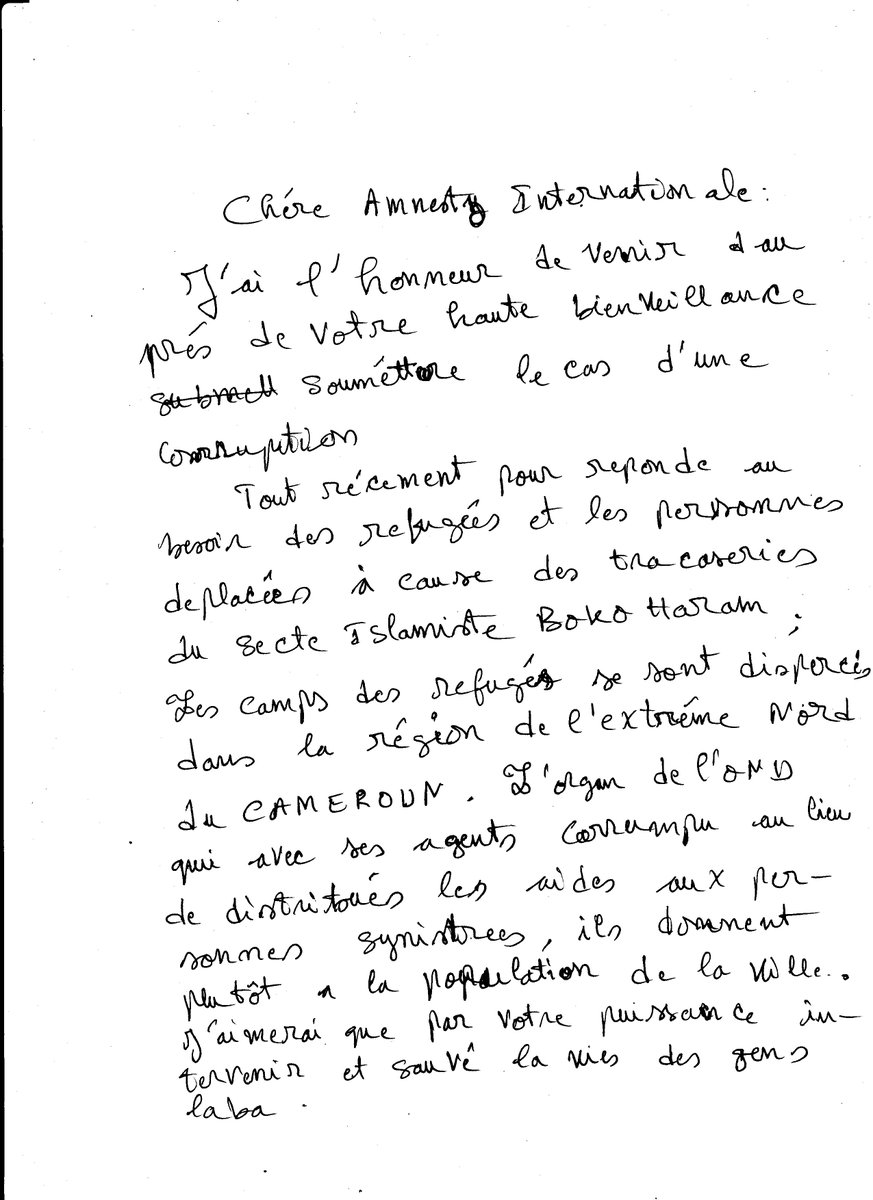 Chére Amnesty Internationale:
J'ai l'honneur de venir d'au
prés de votre haute bienveillance
souméttre le cas d'une
corruption
Tout récement pour reponde au
besoin des refugées et les personnes
deplacées à cause des tracaseries
du secte Islamiste BOKO Haram ;
Les camps des refugés se sont dispercés
dans la région de l'extréme Nord
du CAMEROUN. L'organ de l'OND
qui avec ses agents corrumpu au lieu
de distritoués les aides aux per-
sonnes synistrees, ils donnent
plutôt a la population de la ville.
J'aimerai que par votre puissance in-
tervenir et sauvé la vies des gens
laba.